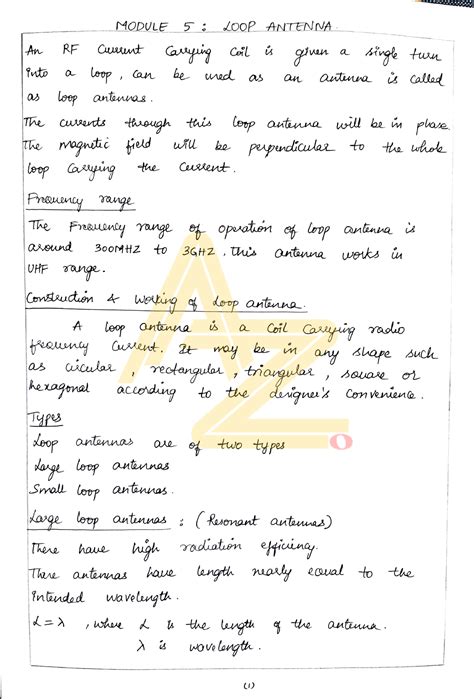 MODULE 5 : LOOP ANTENNA.
An RF Current Carrying Coil is given a single turn
into a loop, can be used as an antenna is called
as loop antennas.
The currents through this loop antenna will be in phase
The magnetic field will be perpendicular to the whole
loop carrying the current.
Frequency range
The Frequency range of operation of loop antenna is
around 300MHZ to 3GHZ. This antenna works in
UHF range.
Construction & Working of Loop antenna.
A loop antenna is a Coil Carrying radio
frequency Current. It may be in any shape such
as circular, rectangular, triangular, square or
hexagonal according to the designer's convenience.
Types
Loop antennas are of two types
Large loop antennas
Small loop antennas.
Large loop antennas : (Resonant antennas)
There have high radiation efficiency.
There antennas have length nearly equal to the
intended wavelength.
L = λ, where L is the length of the antenna.
λ is wavelength.
(1)
AZ